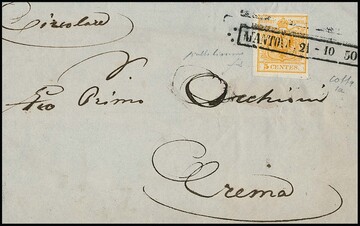 Circolare
MANTOVA 21-10 50
5 CENTES.
Primo Occhioni
Crema